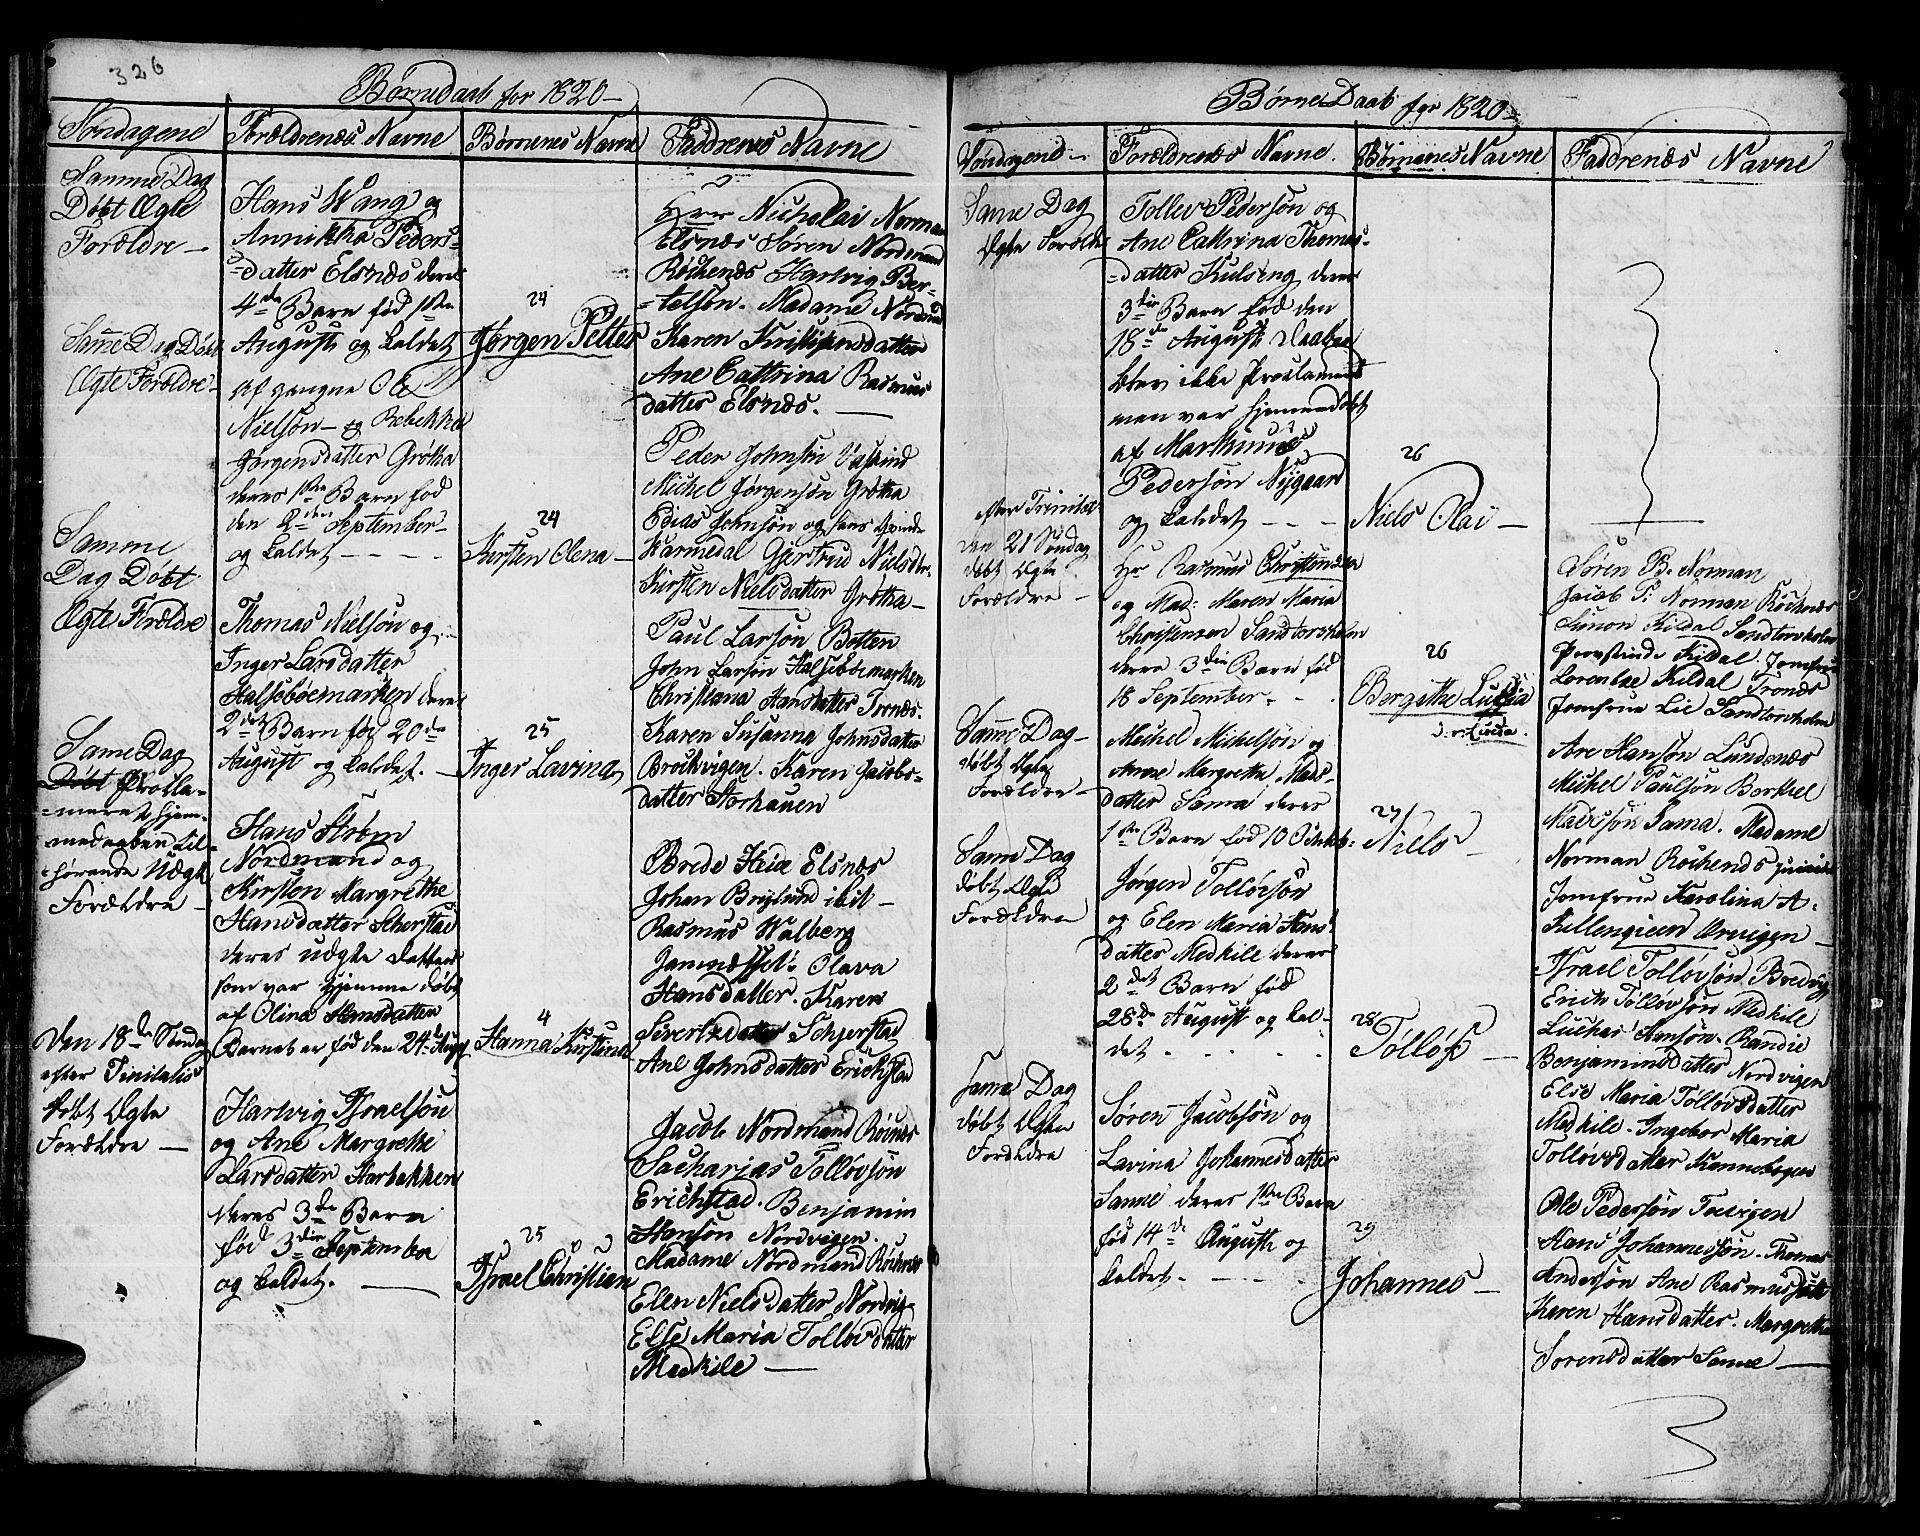 326
Børnedaab for 1820 –
Søndagene
Forældrenes Navne
Børnenes Navne
Faddrenes Navne
Samme Dag
Døbt Ægte
Forældre –
Hans Wang og
Annikka Peders-
-datter Elsnæs deres
4de Barn fød 1ste
August og kaldet
24
Jørgen Petter
Herr Nicholai Norman
Elsnæs Søren Nordmand
Røckenæs Hartvig Ber-
-telsøn. Madame Nordmand
Karen Kristiansdatter
Ane Cattrina Rasmus
datter Elsnæs. –
Samme Dag Døbt
Ægte Forældre –
af gangne Ole
Nielsøn – og Rebekka
Jørgensdatter Grøtha
deres 1ste Barn fød
den 2den September –
og kaldet – – – –
24
Kirsten Olena –
Peder Johnsøn
Michel Jørgensøn Grøtha
Edias Johnsøn og hans Qvinde
Karmedal Gjertrud Nielsdr.
Kirsten Nielsdatter Grøtha –
Samme
Dag Døbt
Ægte Forældre
Thomas Nielsøn og
Inger Larsdatter
Halsebøemarken deres
2det Barn fød 20de
August og kaldet. –
25
Inger Lavina
Paul Larsøn Botten
John Larsøn Halsebøemarken
Christiana Hansdatter Tornæs.
Karen Susanna Johnsdatter
Brockvigen. Karen Jacobs-
datter Storhauen
Same Dag
Døbt Prokla-
-meret hjem-
medaaben til-
-hørende Uægte
Forældre –
Hans
Nordmand og
Kirsten Margrethe
Hansdatter Scherstad
deres uægte datter
som var hjemme døbt
af Olina Hansdatter
Barnet er fød den 24de Aug
4
Hanna Kirstina
Brede Hid Elsnæs
Johan Brylund ibid –
Rasmus Walberg
Olava
Hansdatter. Karen
Severtsdatter Schjerstad
Ane Johnsdatter Erichstad
Den 18de Søndag
efter Tinitatis
døbt Ægte
Forældre –
Hartvig Israelsøn
og Ane Margrethe
Larsdatter Storbakken
deres 3de Barn
fød 3die September
og kaldet. –
25
Israel Christian
Jacob Nordmand Røknæs
Sacharias Tolløvsøn
Erichstad. Benjamin
Hansøn Nordvigen.
Madame Nordmand Røcknæs
Elen Nielsdatter Nordvig
Else Maria Tolløvsdatter
Medkile –
Børne Daab for 1820 –
Søndagene –
Forældrenes Navne.
Børnenes Navne
Faddrenes Navne
Same Dag
Ægte Forældre
Tollev Pedersøn og
Ane Cattrina Thomas-
-datter Kulseng deres
3die Barn fød den
18de August Daaben
blev ikke Proklameret
men var hjemmedøbt
af Markus
Pedersøn Nygaard
og kaldet – – –
26
Niels Olai –
efter Trinitat.
den 21 Søndag
døbt Ægte
Forældre –
Hr Rasmus Christensen
og Mad: Maren Maria
Christensen Sandtorvholm
deres 3die Barn fød
18 September. – .
26
Bergithe Lucia
Lucia.
Søren B. Norman
Jacob P: Norman Røcknæs
Simon Kildal Sandtorvholm
Provstinde Kildal. Jomfrue
Lorentze Kildal Tronæs
Jomfrue Lie Sandtorvholm
Same Dag –
døbt Ægte
Forældre –
Michel Mickelsøn og
Anne Margrethe Mads-
datter Sama deres
1ste Barn fød 10 Octob:
27
Niels –
Are Hansøn Lundenæs
Mickel Paulsøn Borkel
Madssøn Sama. Madame
Norman Røckenæs
Jomfrue Karolina A.
Killengreen Ørvigen –
Same Dag
døbt Ægte
Forældre
Jørgen Tolløvsøn
og Elen Maria Hans-
datter Medkile deres
2det Barn fød
28de August og kal-
det. . . . . .
28
Tølløf –
Israel Tolløvsøn Bredvig
Erick Tølløvsøn Medkile
Luckas Hansøn. Randie
Benjaminsdatter Nordvigen
Else Maria Tolløvsdatter
Medkile. Ingebor Maria
Tolløvsdatter Kannebogen
Same Dag
døbt Ægte
Forældre
Søren Jacobsøn og
Lavina Johannesdatter
Sanne deres 1ste Barn
fød 14de August og
kaldet. – . – .
29
Johannes –
Ole Pedersøn Tovigen
Hans Johannessøn. Thomas
Andersøn Ane Rasmusdatter
Karen Hansdatter. Margrethe
Sørensdatter Sanne –